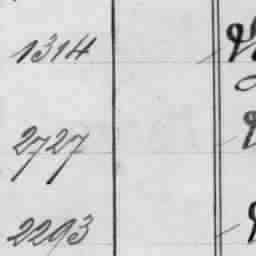 1314
2727
2293